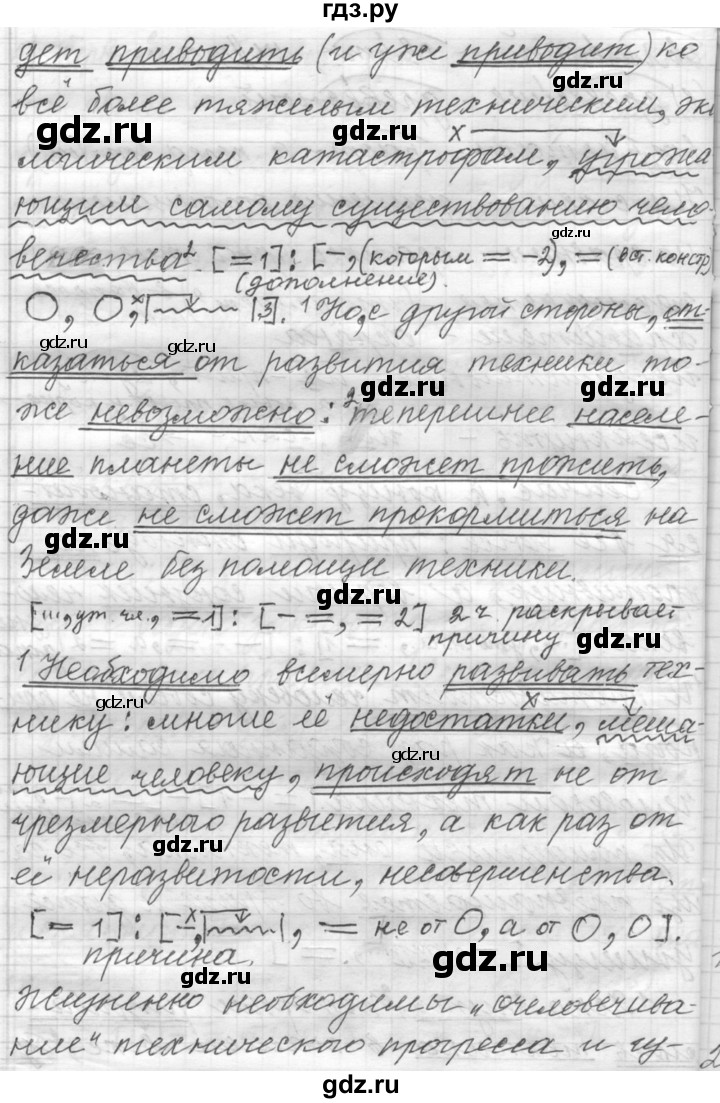 гдз.ру
дет приводить (и уже приводит) ко
gdz.ru
всё более тяжелым техническим, эко
gdz.ru gdz.ru
логическим катастрофам, угрожа
ющим самому существованию чело
gdz.ru
вечества². [= 1]: [-, (которым = -2), = (вст. констр)
(дополнение).
gdz.ru
O, O, |~~~~|3]. ¹Но, с другой стороны, от-
gdz.ru gdz.ru
казаться от развития техники то-
gdz.ru gdz.ru
же невозможно: ²теперешнее населе-
ние планеты не сможет прожить,
gdz.ru
даже не сможет прокормиться на
gdz.ru
Земле без помощи техники.
gdz.ru
[..., ут. чл., = 1]: [- =, = 2] 2 ч. раскрывает
причину
gdz.ru
¹Необходимо всемерно развивать тех-
gdz.ru
нику: многие её недостатки, меша-
gdz.ru
ющие человеку, происходят не от
чрезмерного развития, а как раз от
gdz.ru
её неразвитости, несовершенства.
[= 1]: [-, |~~~~|, = не от O, а от O, O].
причина.
gdz.ru gdz.ru
Жизненно необходимы „очеловечива-
ние“ технического прогресса и гу-
2
gdz.ru